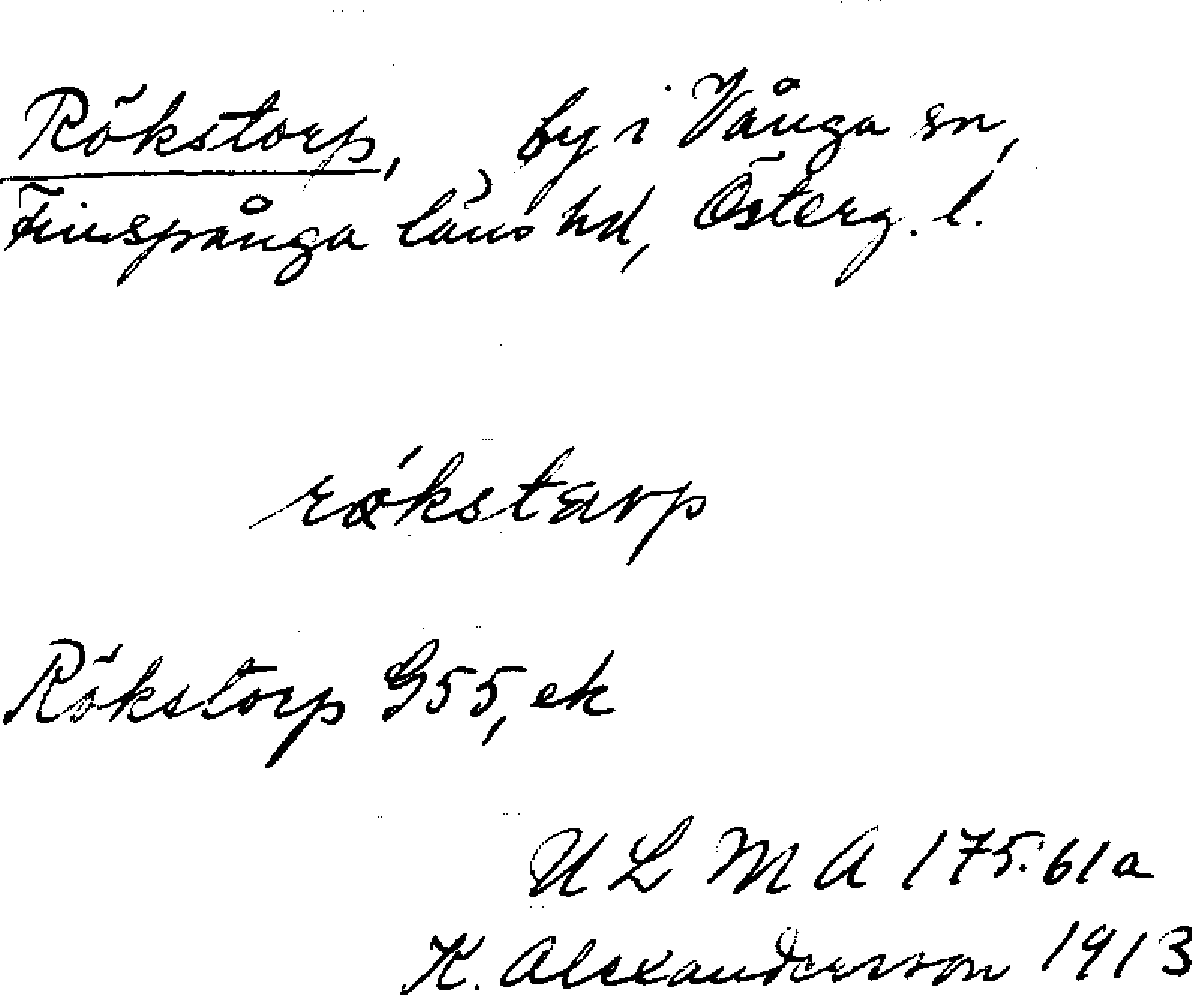 Rökstorp, by i Vånga sn,
Finspånga läns hd, Österg. l.
Rökstorp G55, ek
U L M A 175:61a
K. Alexanderson 1913